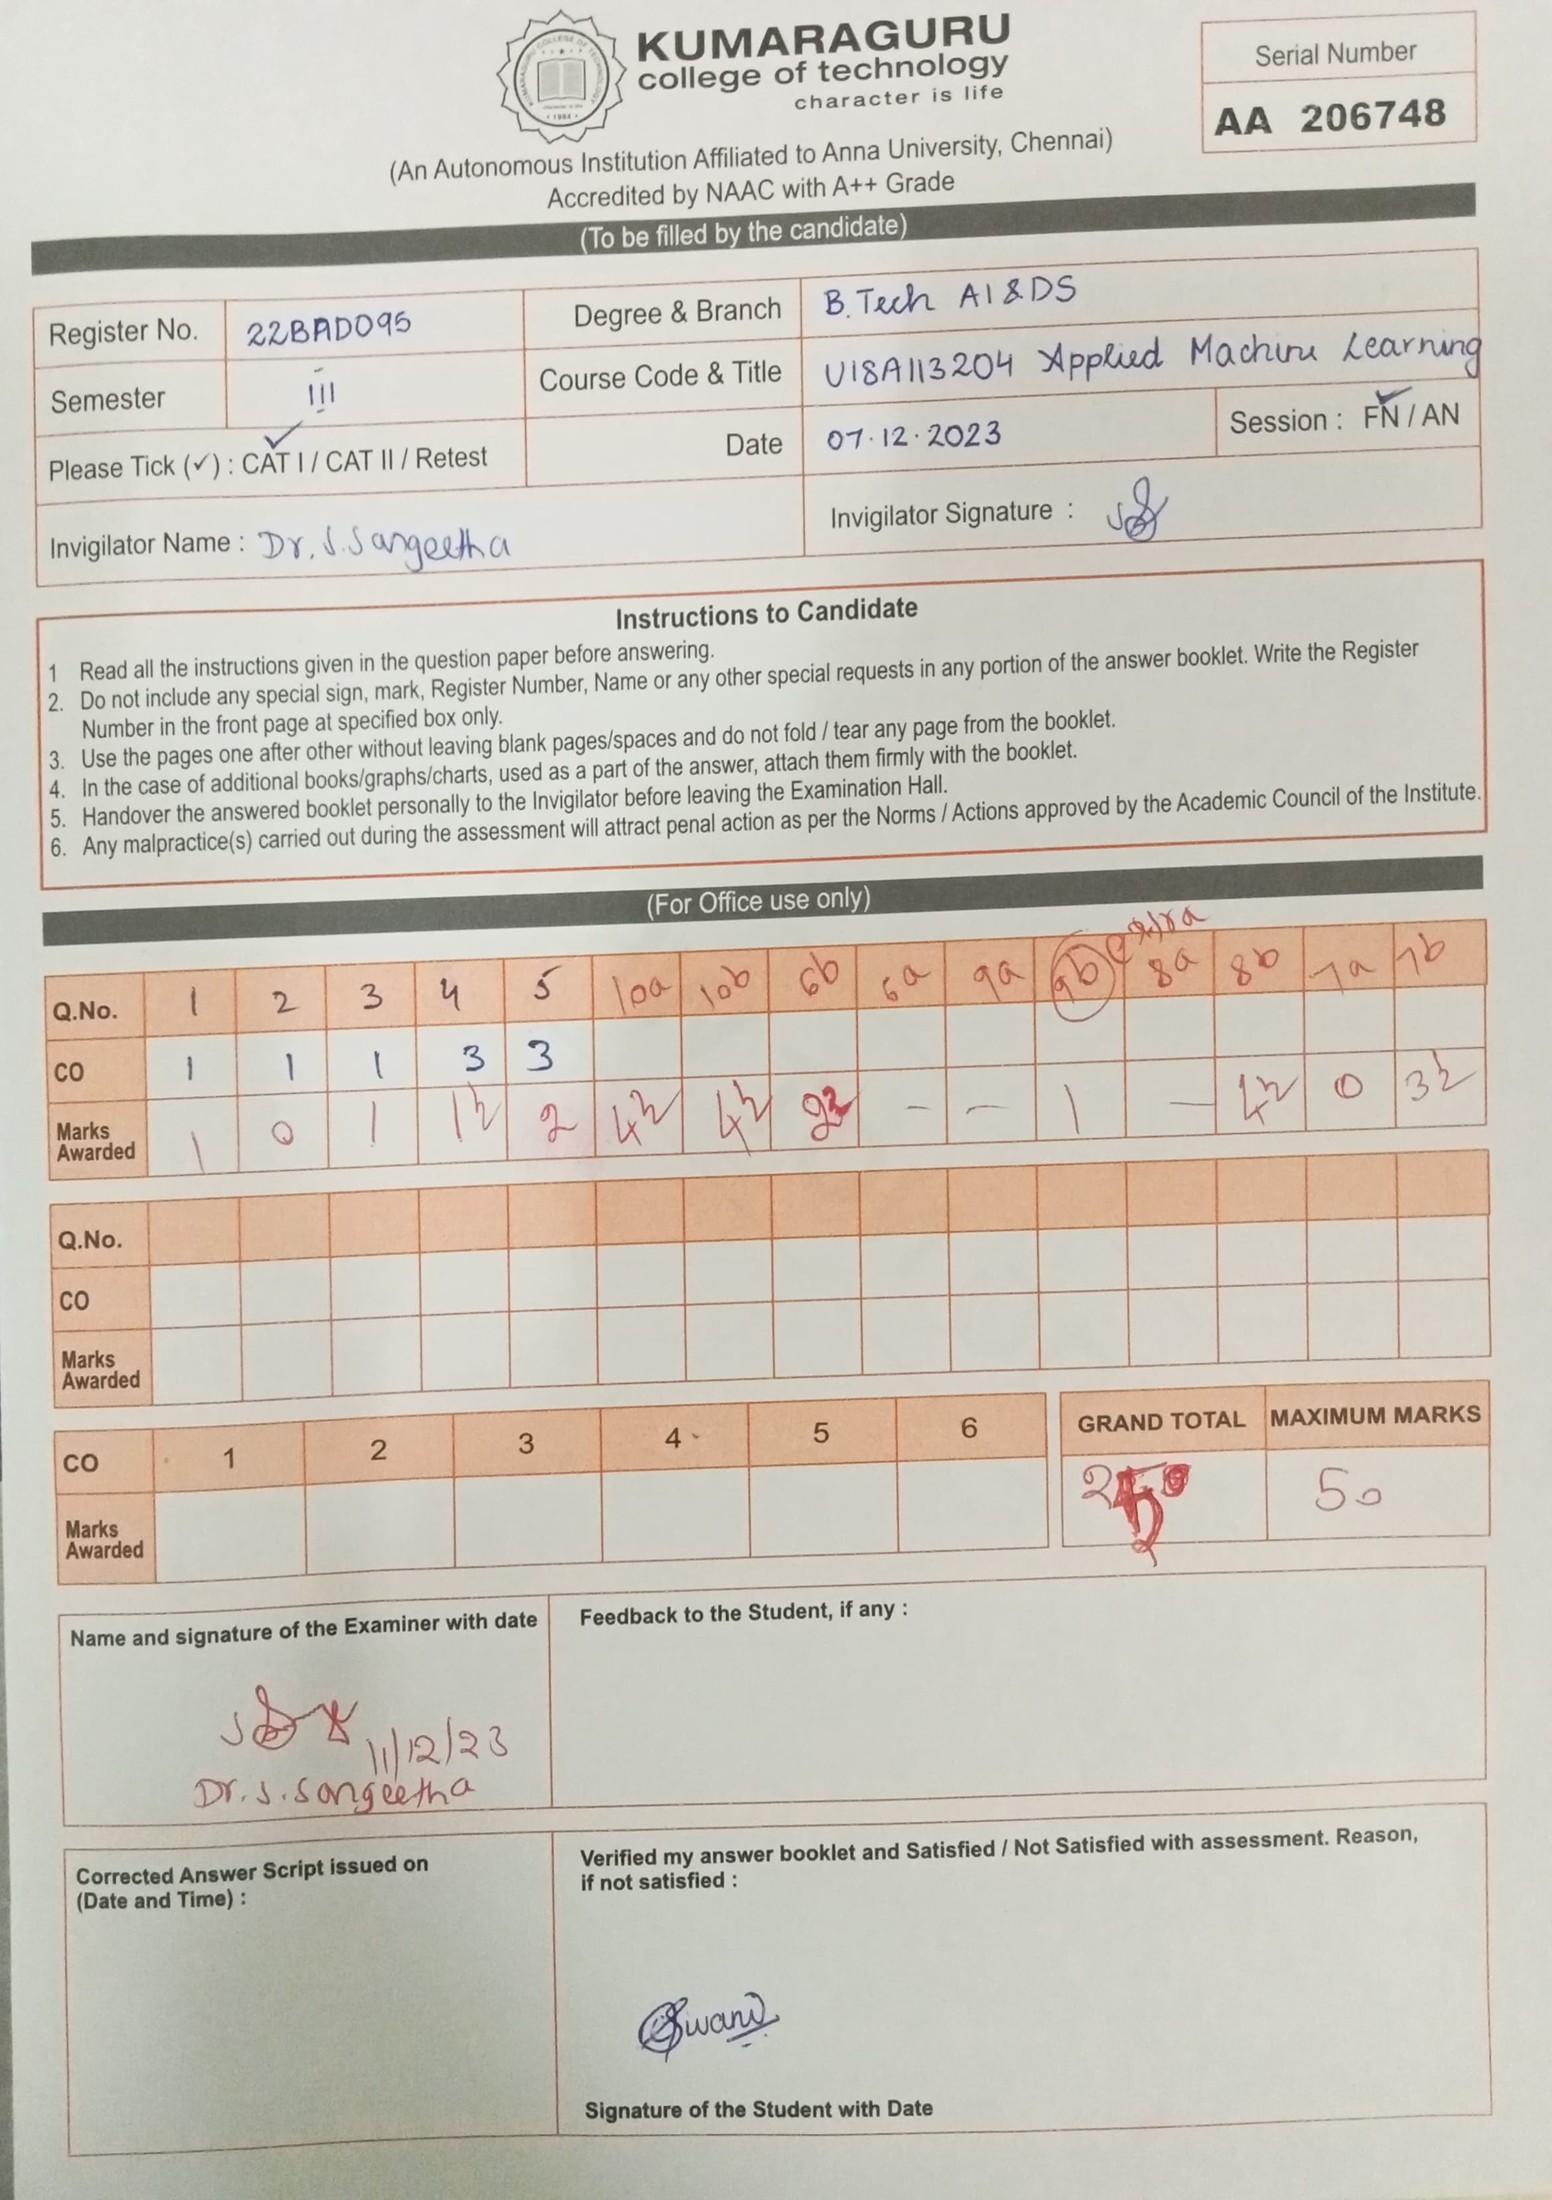 KUMARAGURU
college of technology
character is life
KUMARAGURU COLLEGE OF TECHNOLOGY
1984
Serial Number
AA 206748
(An Autonomous Institution Affiliated to Anna University, Chennai)
Accredited by NAAC with A++ Grade
(To be filled by the candidate)
Register No. 22BAD095 Degree & Branch B.Tech AI&DS
Semester III Course Code & Title U18AII3204 Applied Machine Learning
Please Tick (✓) : CAT I / CAT II / Retest Date 07.12.2023 Session : FN / AN
Invigilator Name : Dr. S. Sangeetha Invigilator Signature :
Instructions to Candidate
1 Read all the instructions given in the question paper before answering.
2. Do not include any special sign, mark, Register Number, Name or any other special requests in any portion of the answer booklet. Write the Register
Number in the front page at specified box only.
3. Use the pages one after other without leaving blank pages/spaces and do not fold / tear any page from the booklet.
4. In the case of additional books/graphs/charts, used as a part of the answer, attach them firmly with the booklet.
5. Handover the answered booklet personally to the Invigilator before leaving the Examination Hall.
6. Any malpractice(s) carried out during the assessment will attract penal action as per the Norms / Actions approved by the Academic Council of the Institute.
(For Office use only)
extra
Q.No. 1 2 3 4 5 10a 10b 6b 6a 9a 9b 8a 8b 7a 7b
CO 1 1 1 3 3
Marks Awarded 1 0 1 1½ 2 4½ 4½ - - 1 - 4½ 0 3½
Q.No.
CO
Marks Awarded
CO 1 2 3 4 5 6 GRAND TOTAL MAXIMUM MARKS
Marks Awarded 50
Name and signature of the Examiner with date
11/12/23
Dr. S. Sangeetha
Feedback to the Student, if any :
Corrected Answer Script issued on
(Date and Time) :
Verified my answer booklet and Satisfied / Not Satisfied with assessment. Reason,
if not satisfied :
Signature of the Student with Date